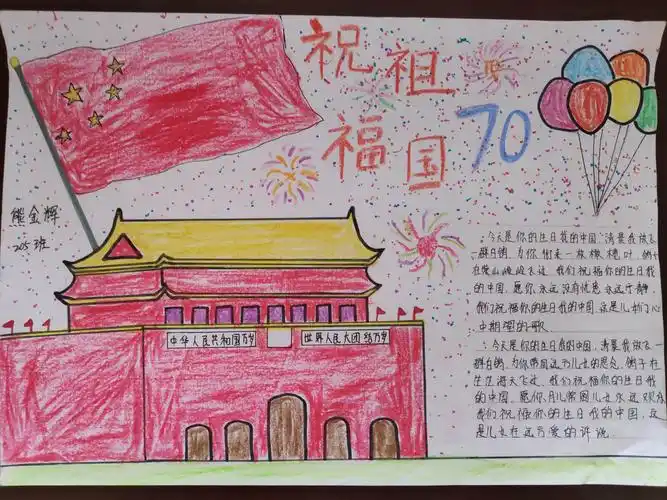 祝祖
福国
70
熊金辉
205班
中华人民共和国万岁
世界人民大团结万岁
:今天是你的生日我的中国,清晨我放飞一
群白鸽,为你衔来一枚橄榄叶,鸽子
在崇山峻岭飞过,我们祝福你的生日我
的中国,愿你永远没有忧患永远宁静,
我们祝福你的生日我的中国,这是儿女们心
中期望的歌
:今天是你的生日我的中国,清晨我放飞一
群白鸽,为你带回远方儿女的思念,鸽子在
茫茫海天飞过,我们祝福你的生日我
的中国,愿你月儿常圆儿女永远欢乐
我们祝福你的生日我的中国,这
是儿女在远方爱的诉说.